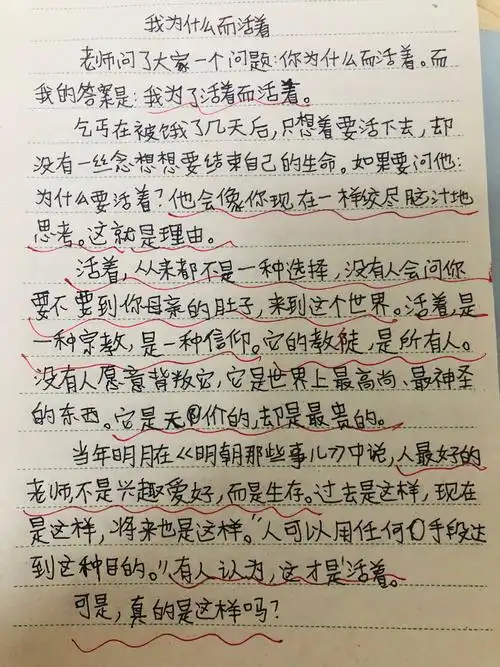 我为什么而活着
老师问了大家一个问题:你为什么而活着。而
我的答案是:我为了活着而活着。
乞丐在被饿了几天后,只想着要活下去,却
没有一丝念想想要结束自己的生命。如果要问他:
为什么要活着?他会像你现在一样绞尽脑汁地
思考。这就是理由。
活着,从来都不是一种选择,没有人会问你
要不要到你母亲的肚子,来到这个世界。活着,是
一种宗教,是一种信仰。它的教徒,是所有人。
没有人愿意背叛它,它是世界上最高尚、最神圣
的东西。它是无价的,却是最贵的。
当年明月在《明朝那些事儿》中说,人最好的
老师不是兴趣爱好,而是生存。过去是这样,现在
是这样,将来也是这样。"人可以用任何手段达
到这种目的。"有人认为,这才是活着。
可是,真的是这样吗?